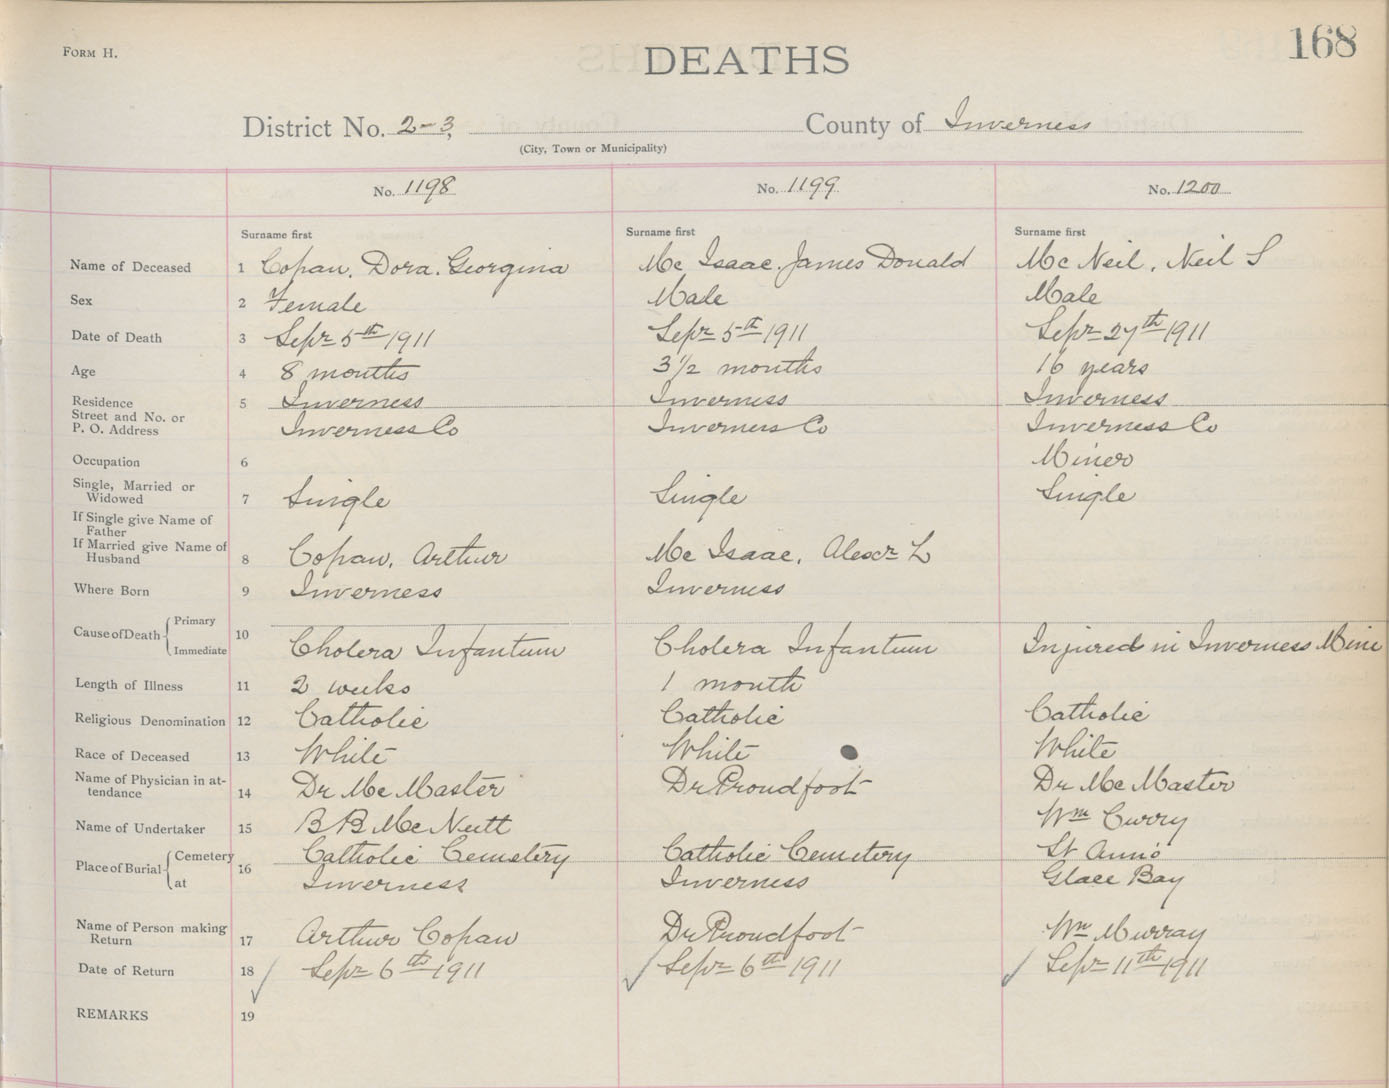 FORM H.
DEATHS
168
District No. 2-3, County of Inverness
(City, Town or Municipality)
No. 1198 No. 1199 No. 1200
Surname first Surname first Surname first
Name of Deceased 1 Copan, Dora. Georgina Mc Isaac, James Donald Mc Neil, Neil S
Sex 2 Female Male Male
Date of Death 3 Sepr 5th 1911 Sepr 5th 1911 Sepr 27th 1911
Age 4 8 months 3 1/2 months 16 years
Residence 5 Inverness Inverness Inverness
Street and No. or
P. O. Address Inverness Co Inverness Co Inverness Co
Occupation 6 Miner
Single, Married or
Widowed 7 Single Single Single
If Single give Name of
Father
If Married give Name of
Husband 8 Copan, Arthur Mc Isaac, Alexr L
Where Born 9 Inverness Inverness
Cause of Death Primary 10
Immediate Cholera Infantum Cholera Infantum Injured in Inverness Mine
Length of Illness 11 2 weeks 1 month
Religious Denomination 12 Catholic Catholic Catholic
Race of Deceased 13 White White White
Name of Physician in at-
tendance 14 Dr Mc Master Dr Proudfoot Dr Mc Master
Name of Undertaker 15 B B Mc Nutt Wm Curry
Place of Burial Cemetery 16 Catholic Cemetery Catholic Cemetery St Ann's
at Inverness Inverness Glace Bay
Name of Person making
Return 17 Arthur Copan Dr Proudfoot Wm Murray
Date of Return 18 Sepr 6th 1911 Sepr 6th 1911 Sepr 11th 1911
REMARKS 19